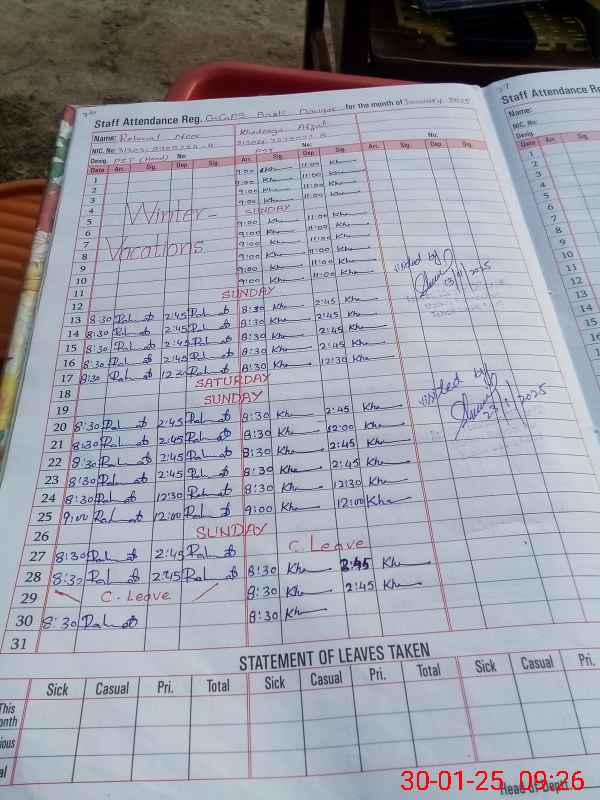 Staff Attendance Reg. for the month of January 2025
Staff Attendance Re
Name: Rahmat Noor
Name:
NIC. No.
NIC. No.
Desig. PST (Head) No: PST No: No.
Desig.
Date Arr. Sig. Dep. Sig. Arr. Sig. Dep. Sig. Arr. Sig. Dep. Sig.
1 9:00 Kh 11:00 Kh
2 9:00 Kh 11:00 Kh
3 9:00 Kh 11:00 Kh
4 9:00 Kh 11:00 Kh
Winter-
5 SUNDAY
6 9:00 Kh 11:00 Kh
7 9:00 Kh 11:00 Kh
Vacations
8 9:00 Kh 11:00 Kh
9 9:00 Kh 11:00 Kh
10 9:00 Kh 11:00 Kh
visited by
11
12 SUNDAY
13 8:30 Rahmat 2:45 Rahmat 8:30 Kh 2:45 Kh
14 8:30 Rahmat 2:45 Rahmat 8:30 Kh 2:45 Kh
15 8:30 Rahmat 2:45 Rahmat 8:30 Kh 2:45 Kh
16 8:30 Rahmat 2:45 Rahmat 8:30 Kh 2:45 Kh
17 8:30 Rahmat 12:30 Rahmat 8:30 Kh 12:30 Kh
18 SATURDAY
19 SUNDAY
visited by
20 8:30 Rahmat 2:45 Rahmat 8:30 Kh 2:45 Kh
21 8:30 Rahmat 2:45 Rahmat 8:30 Kh 12:00 Kh
22 8:30 Rahmat 2:45 Rahmat 8:30 Kh 2:45 Kh
23 8:30 Rahmat 2:45 Rahmat 8:30 Kh 2:45 Kh
24 8:30 Rahmat 12:30 Rahmat 8:30 Kh 12:30 Kh
25 9:00 Rahmat 12:00 Rahmat 9:00 Kh 12:00 Kh
26 SUNDAY
27 8:30 Rahmat 2:45 Rahmat C. Leave
28 8:30 Rahmat 2:45 Rahmat 8:30 Kh 2:45 Kh
29 C. Leave 8:30 Kh 2:45 Kh
30 8:30 Rahmat 8:30 Kh
31
STATEMENT OF LEAVES TAKEN
Sick Casual Pri. Total Sick Casual Pri. Total Sick Casual Pri.
This
onth
ious
al
Head of Deptt.
30-01-25 09:26